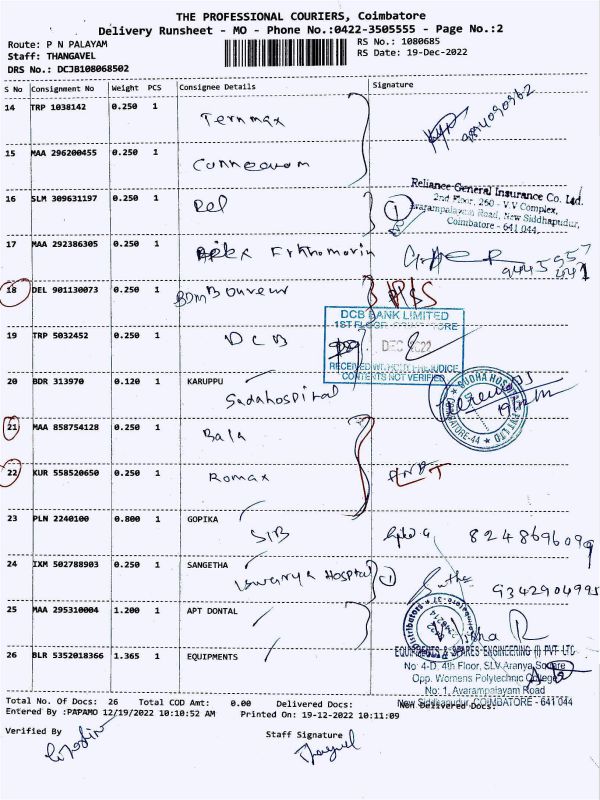 THE PROFESSIONAL COURIERS, Coimbatore
Delivery Runsheet - MO - Phone No.:0422-3505555 - Page No.:2
Route: P N PALAYAM
RS No.: 1080685
Staff: THANGAVEL
RS Date: 19-Dec-2022
DRS No.: DCJB108068502
S No Consignment No Weight PCS Consignee Details Signature
14 TRP 1038142 0.250 1
Ternmax
15 MAA 296200455 0.250 1
16 SLM 309631197 0.250 1
Rel
1
Reliance General Insurance Co. Ltd.
2nd Floor, 260 - V.V Complex,
Avarampalayam Road, New Siddhapudur,
Coimbatore - 641 044.
17 MAA 292386305 0.250 1
18 DEL 901130073 0.250 1
19 TRP 5032452 0.250 1
DCB
DCB BANK LIMITED
1ST FLOOR
DEC 2022
RECEIVED WITHOUT PREJUDICE
CONTENTS NOT VERIFIED
20 BDR 313970 0.120 1 KARUPPU
Sadahospinal
21 MAA 858754128 0.250 1
Bala
22 KUR 558520650 0.250 1
Romax
23 PLN 2240100 0.800 1 GOPIKA
SIB
8248696099
24 IXM 502788903 0.250 1 SANGETHA
Iswarya Hospital
1
9342904995
25 MAA 295310004 1.200 1 APT DONTAL
26 BLR 5352018366 1.365 1 EQUIPMENTS
EQUIPMENTS & SPARES ENGINEERING (I) PVT LTD
No: 4-D, 4th Floor, SLV Aranya Square
Opp. Womens Polytechnic College
No: 1, Avarampalayam Road
New Siddhapudur, COIMBATORE - 641 044
Total No. Of Docs: 26 Total COD Amt: 0.00 Delivered Docs: Non Delivered Docs:
Entered By :PAPAMO 12/19/2022 10:10:52 AM Printed On: 19-12-2022 10:11:09
Verified By
Staff Signature